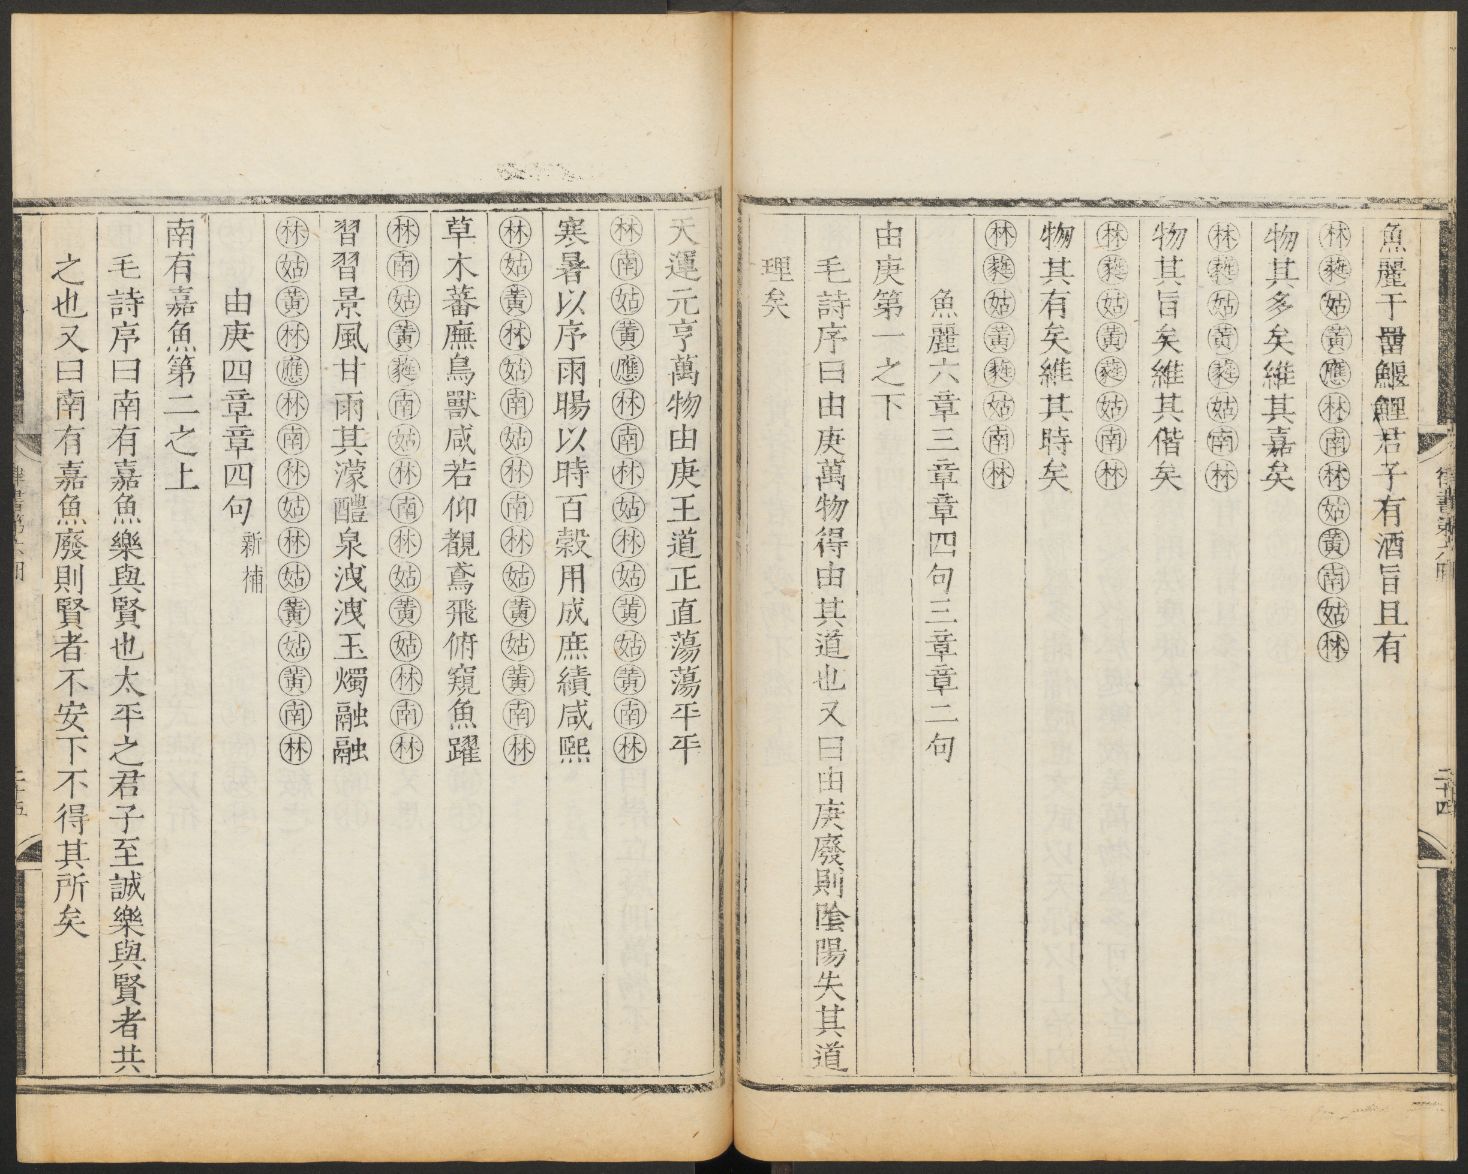 魚麗于罶鰋鯉君子有酒旨且有
林蕤姑黃應林南林姑黃南姑林
物其多矣維其嘉矣
林蕤姑黃蕤姑南林
物其旨矣維其偕矣
林蕤姑黃蕤姑南林
物其有矣維其時矣
林蕤姑黃蕤姑南林
魚麗六章三章章四句三章章二句
由庚第一之下
毛詩序曰由庚萬物得由其道也又曰由庚廢則陰陽失其道
理矣
二十四
天運元亨萬物由庚王道正直蕩蕩平平
林南姑黃應林南林姑林姑黃姑黃南林
寒暑以序雨暘以時百穀用成庶績咸熙
林姑黃林姑南姑林南林姑黃姑黃南林
草木蕃廡鳥獸咸若仰覩鳶飛俯窺魚躍
林南姑黃蕤南姑林南林姑黃姑林南林
習習景風甘雨其濛醴泉洩洩玉燭融融
林姑黃林應林南林姑林姑黃姑黃南林
由庚四章章四句 新補
南有嘉魚第二之上
毛詩序曰南有嘉魚樂與賢也太平之君子至誠樂與賢者共
之也又曰南有嘉魚廢則賢者不安下不得其所矣
二十五